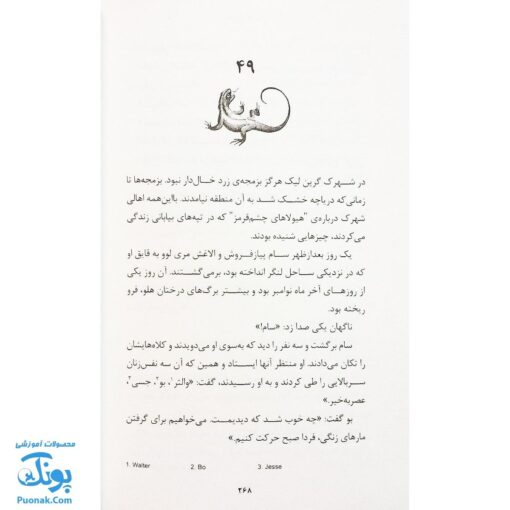 ۴۹
در شهرک گرین لیک هرگز بزمجه‌ی زرد خال‌دار نبود. بزمجه‌ها تا
زمانی‌که دریاچه خشک شد به آن منطقه نیامدند. بااین‌همه اهالی
شهرک درباره‌ی "هیولاهای چشم‌قرمز" که در تپه‌های بیابانی زندگی
می‌کردند، چیزهایی شنیده بودند.
یک روز بعدازظهر سام پیازفروش و الاغش مری لوو به قایق او
که در نزدیکی ساحل لنگر انداخته بود، برمی‌گشتند. آن روز یکی
از روزهای آخر ماه نوامبر بود و بیشتر برگ‌های درختان هلو، فرو
ریخته بود.
ناگهان یکی صدا زد: «سام!»
سام برگشت و سه نفر را دید که به‌سوی او می‌دویدند و کلاه‌هایشان
را تکان می‌دادند. او منتظر آنها ایستاد و همین که آن سه نفس‌زنان
سربالایی را طی کردند و به او رسیدند، گفت: «والتر۱، بو۲، جسی۳،
عصربه‌خیر.»
بو گفت: «چه خوب شد که دیدیمت. می‌خواهیم برای گرفتن
مارهای زنگی، فردا صبح حرکت کنیم.»
1. Walter 2. Bo 3. Jesse
۲۶۸
محصولات آموزشی
پونک
Puonak.Com